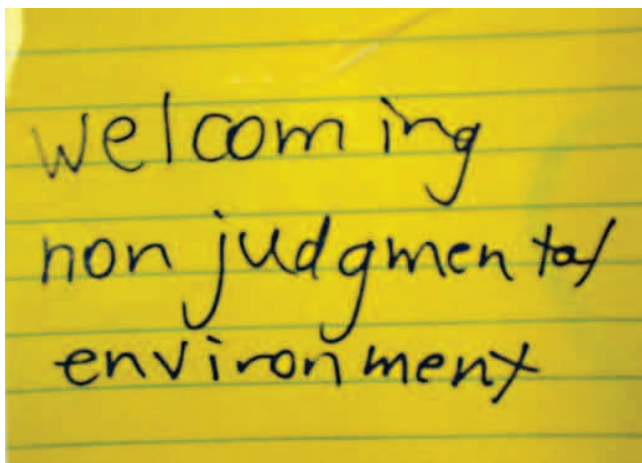 welcoming
non judgmental
environment